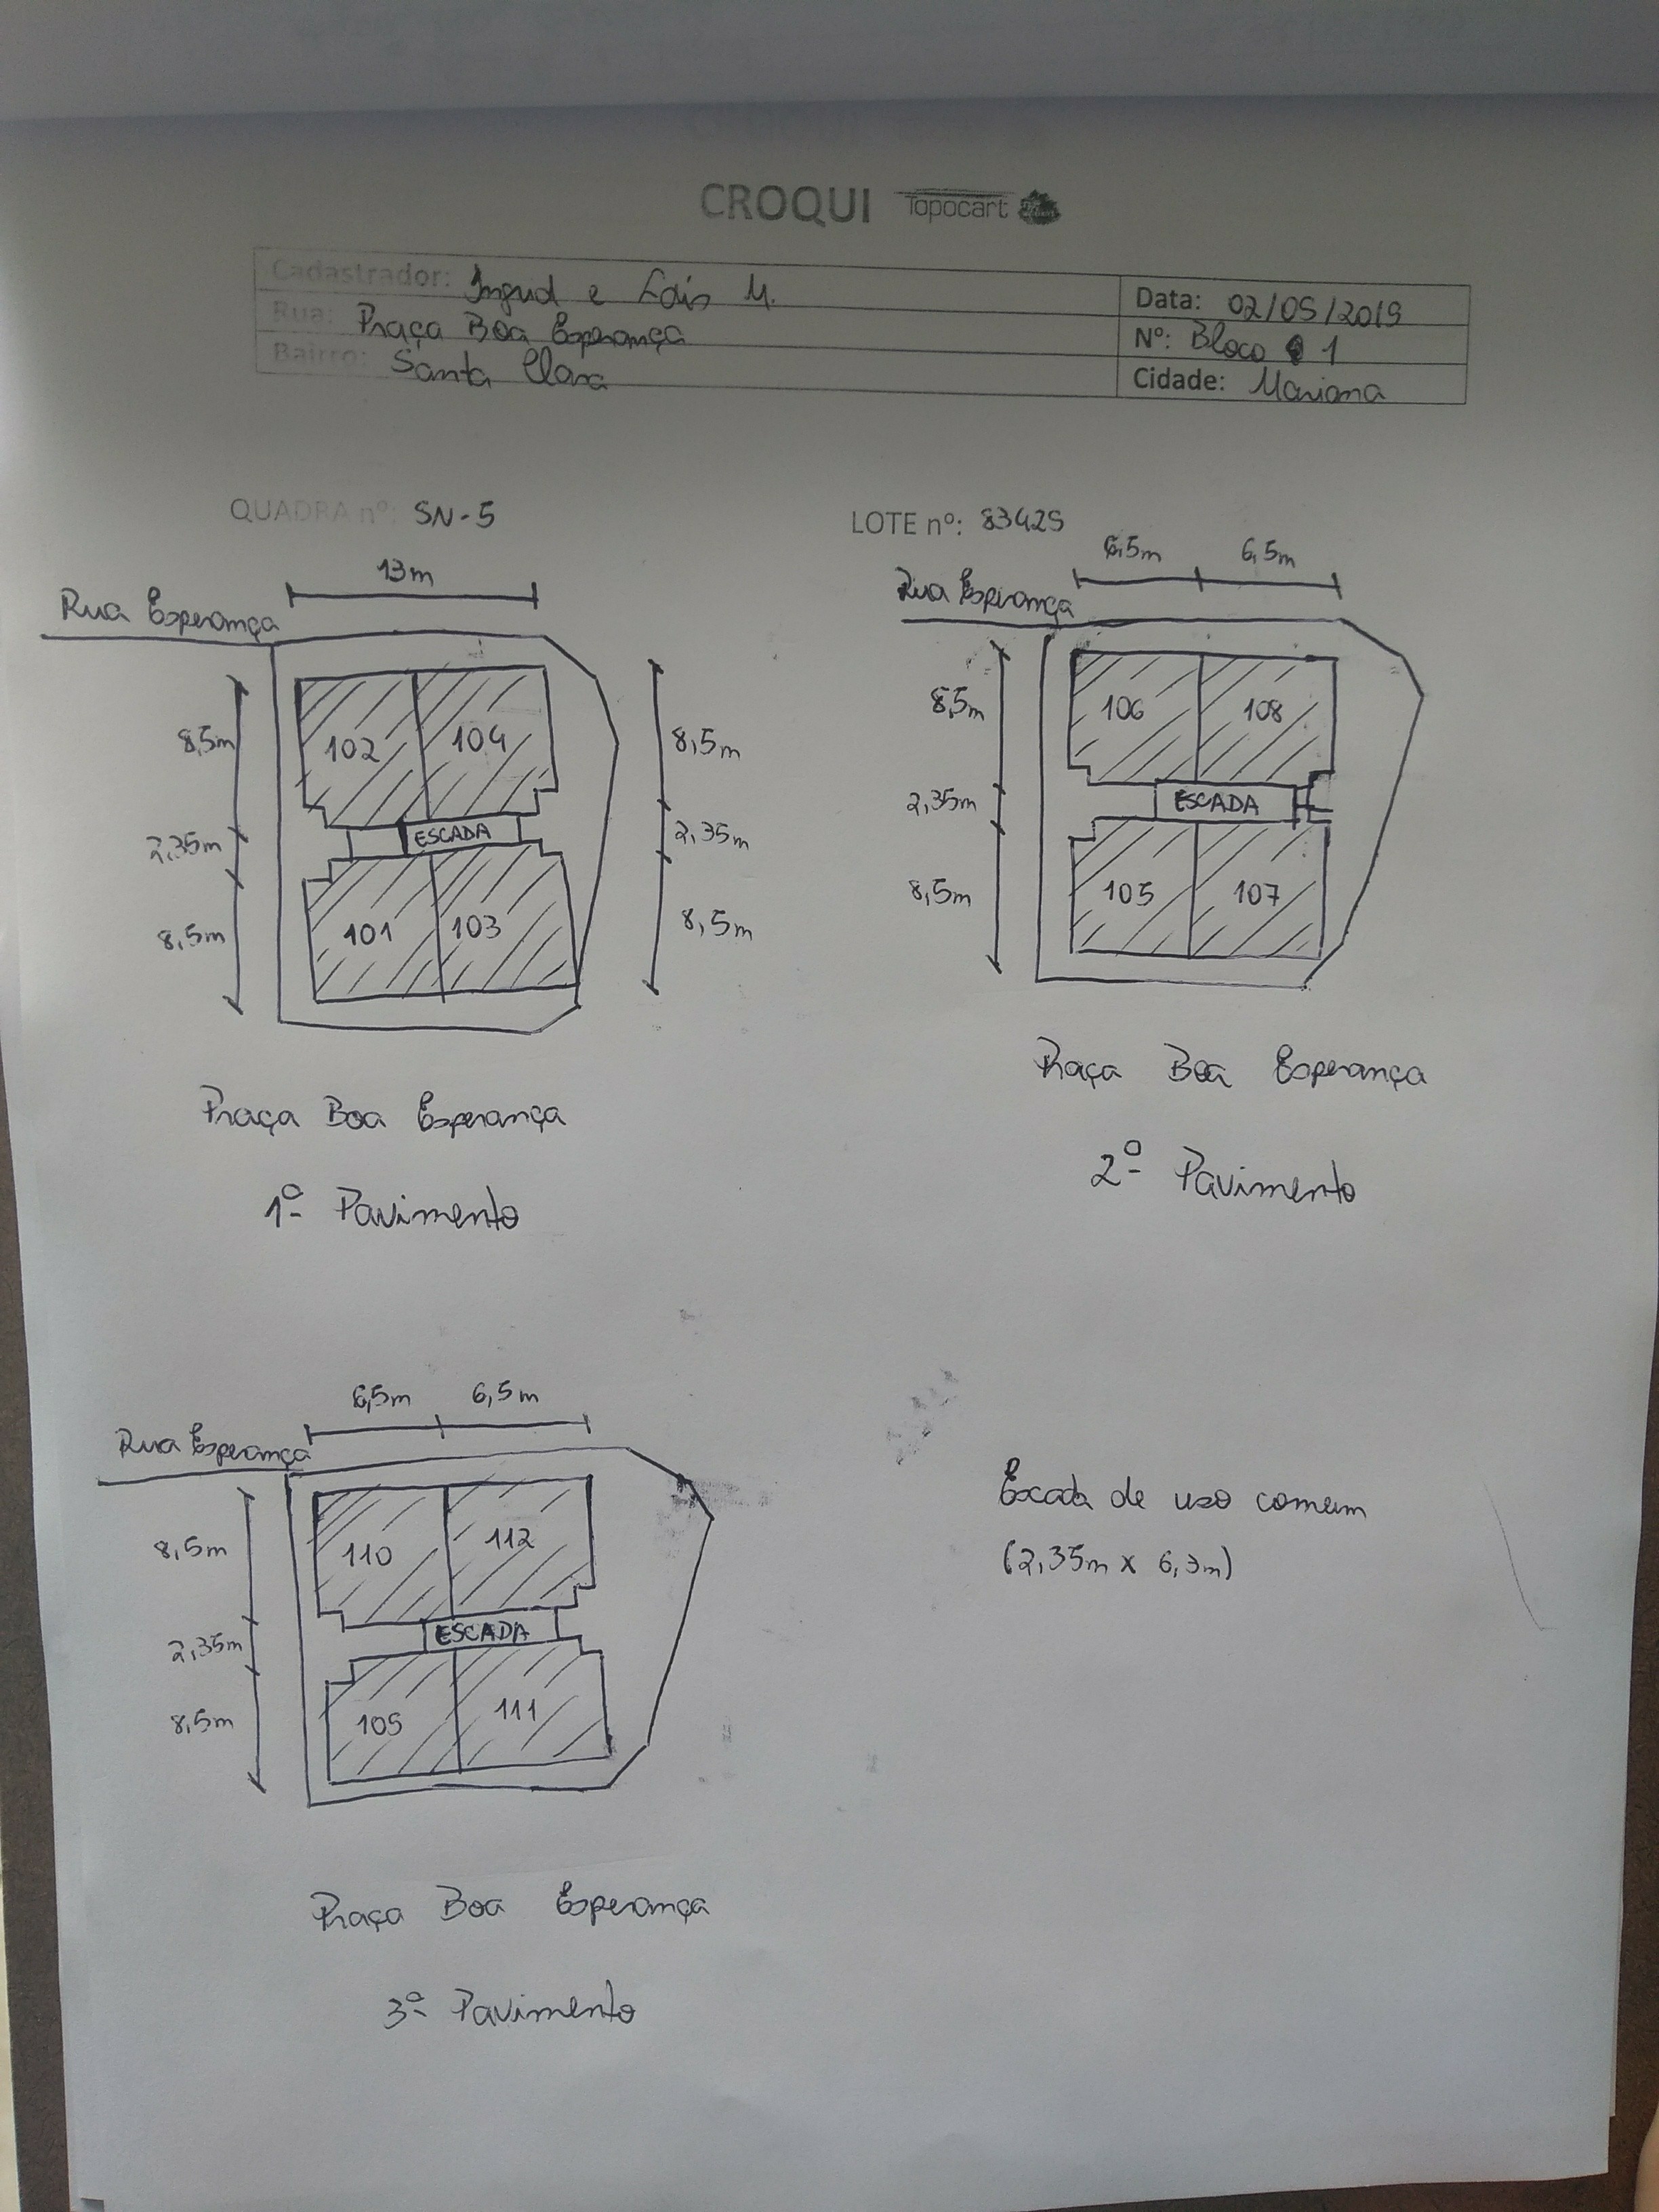 CROQUI Topocart
Cadastrador: Ingrid e Lais M.
Data: 02/05/2019
Rua: Praça Boa Esperança
Nº: Bloco 1
Bairro: Santa Clara
Cidade: Mariana
QUADRA nº: SN-5
LOTE nº: 83429
13m
Rua Esperança
8,5m
2,35m
8,5m
102
104
ESCADA
101
103
8,5m
2,35m
8,5m
Praça Boa Esperança
1º Pavimento
6,5m
6,5m
Rua Esperança
8,5m
2,35m
8,5m
106
108
ESCADA
105
107
Praça Boa Esperança
2º Pavimento
6,5m
6,5m
Rua Esperança
8,5m
2,35m
8,5m
110
112
ESCADA
109
111
Praça Boa Esperança
3º Pavimento
Escada de uso comum
(2,35m x 6,3m)